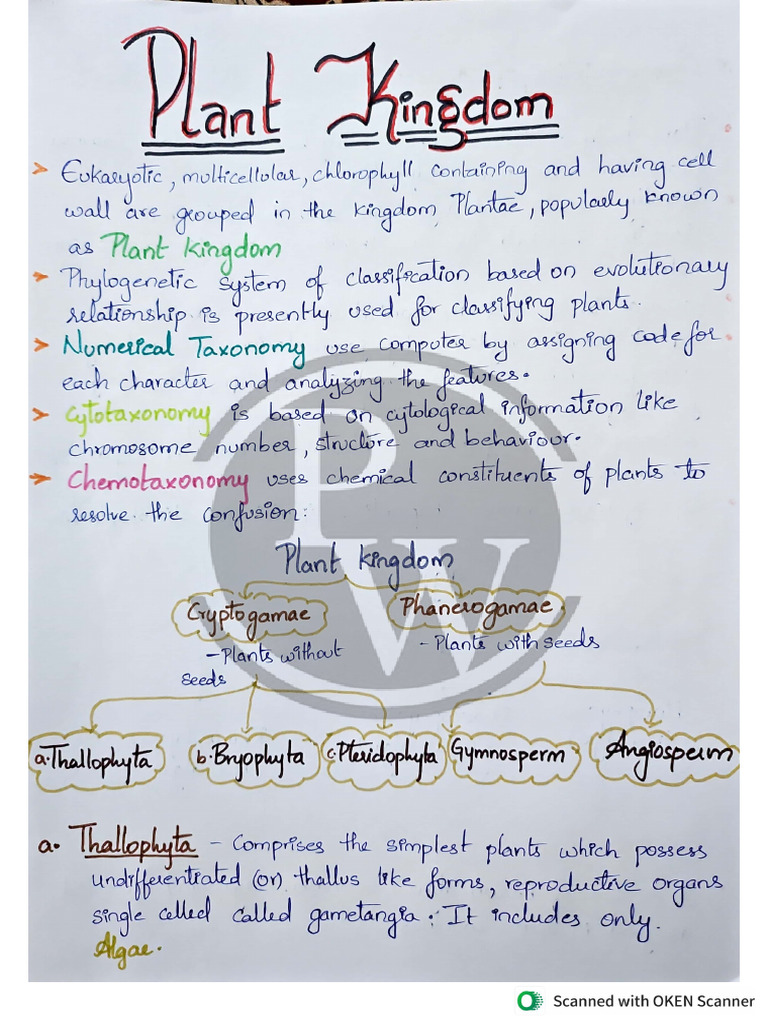 Plant Kingdom
Eukaryotic, multicellular, chlorophyll containing and having cell
wall are grouped in the kingdom Plantae, popularly known
as Plant Kingdom
Phylogenetic system of classification based on evolutionary
relationship is presently used for classifying plants.
Numerical Taxonomy use computer by assigning code for
each character and analyzing the features.
Cytotaxonomy is based on cytological information like
chromosome number, structure and behaviour.
Chemotaxonomy uses chemical constituents of plants to
resolve the confusion:
PW
Plant kingdom
Cryptogamae
Phanerogamae
- Plants without
seeds
- Plants with seeds
a. Thallophyta
b. Bryophyta
c. Pteridophyta
Gymnosperm
Angiosperm
a. Thallophyta - Comprises the simplest plants which possess
undifferentiated (or) thallus like forms, reproductive organs
single celled called gametangia. It includes only.
Algae.
Scanned with OKEN Scanner